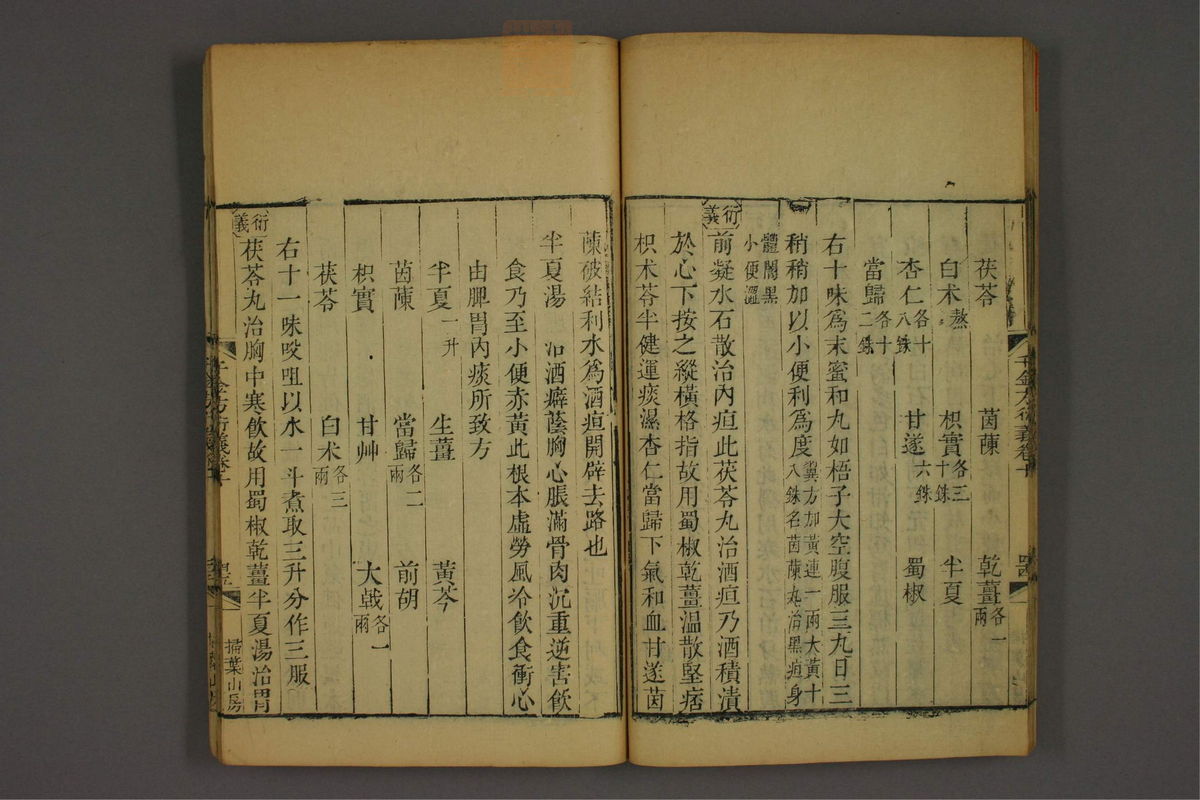 茯苓 茵蔯 乾薑各一兩
白术熬 枳實各三十銖 半夏
杏仁各十八銖 甘遂六銖 蜀椒
當歸各十二銖
右十味爲末蜜和丸如梧子大空腹服三丸日三
稍稍加以小便利爲度翼方加黃連一兩大黃十八銖名茵蔯丸治黑疸身
體闇黑小便澀
衍義
前凝水石散治內疸此茯苓丸治酒疸乃酒積漬
於心下按之縱橫格指故用蜀椒乾薑溫散堅痞
枳术苓半健運痰濕杏仁當歸下氣和血甘遂茵
蔯破結利水爲酒疸開辟去路也
半夏湯 治酒癖蔭胸心脹滿骨肉沉重逆害飲
食乃至小便赤黃此根本虛勞風冷飲食衝心
由脾胃內痰所致方
半夏一升 生薑 黃芩
茵蔯 當歸各二兩 前胡
枳實 甘艸 大戟各一兩
茯苓 白术各三兩
右十一味㕮咀以水一斗煮取三升分作三服
衍義
茯苓丸治胸中寒飲故用蜀椒乾薑半夏湯治胃
千金方衍義卷十
掃葉山房